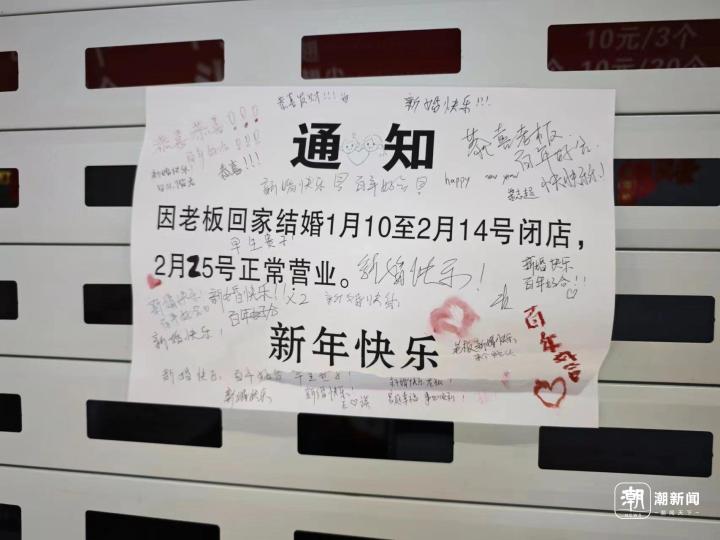 10元/3个
10元/20个
恭喜发财!!!
新婚快乐!!!
恭喜 恭喜!!!
恭喜!!!
新婚快乐!
通知
恭喜老板
百年好合
快快乐乐!
新婚快乐 百年好合
happy new year!
因老板回家结婚1月10至2月14号闭店，
早生贵子!
2月25号正常营业。
新婚快乐!
新婚快乐
百年好合!!
新婚快乐!
新婚快乐! x2
新婚快乐
百年好合
新婚快乐!
百年好合
老板新婚快乐
新年快乐
新婚快乐
新婚快乐
新婚快乐!
新婚快乐
潮
NEWS
潮新闻